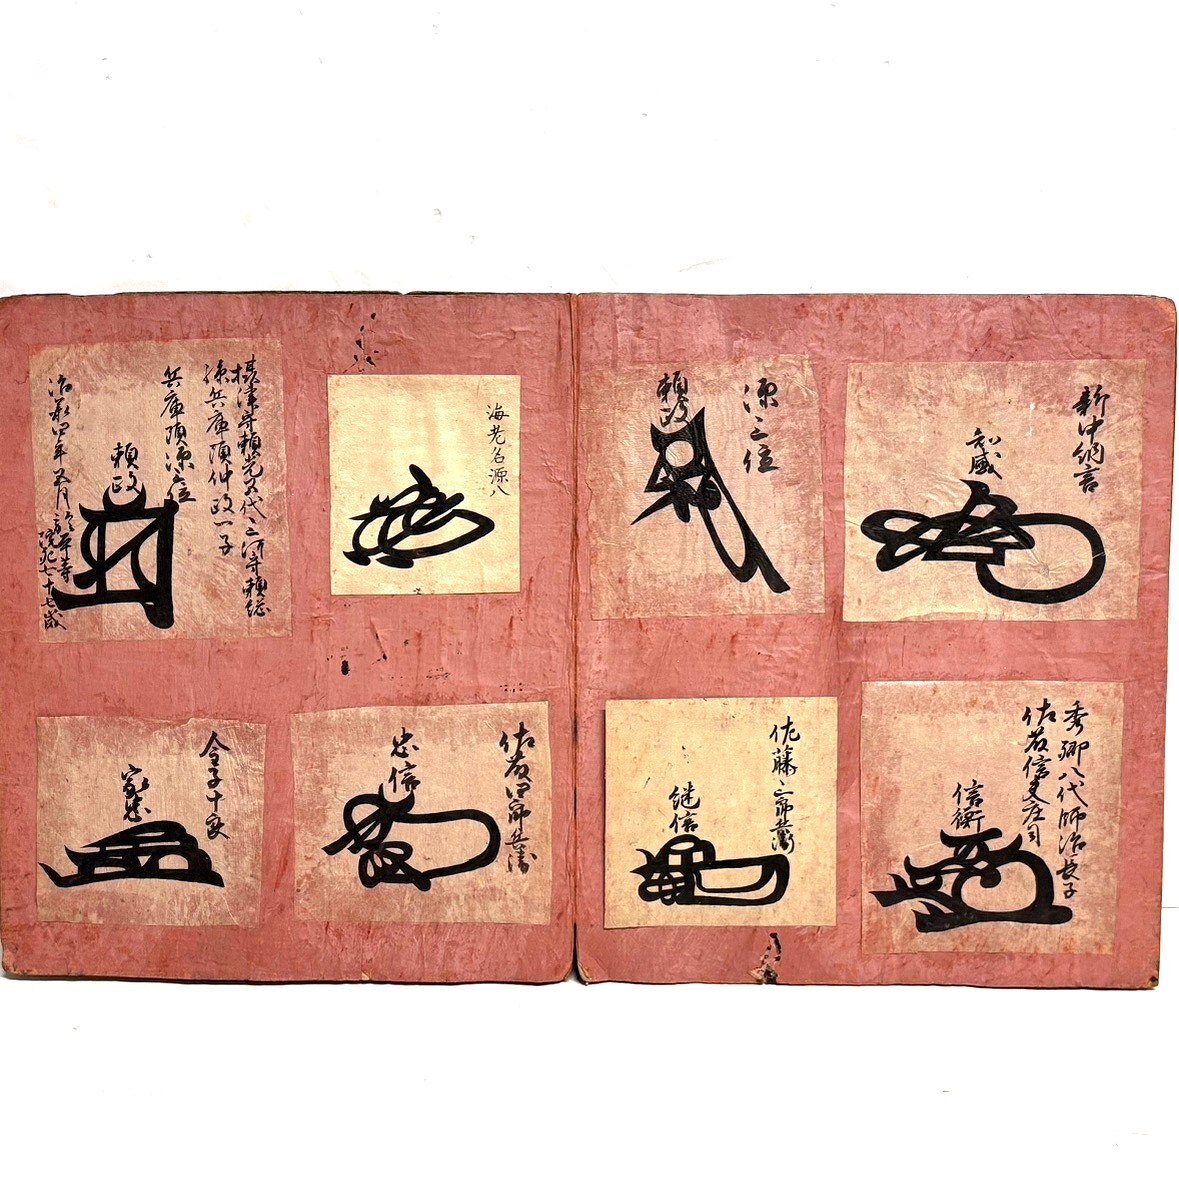 新中納言
知盛
源三位
頼政
秀郷八代師治長子
佐藤信夫庄司
信衡
佐藤三郎兵衛
継信
海老名源八
摂津守頼光五代三河守頼綱
孫兵庫頭仲政一子
兵庫頭源三位
頼政
治承四年五月
七十七歳
佐藤四郎兵衛
忠信
金子十郎
家忠